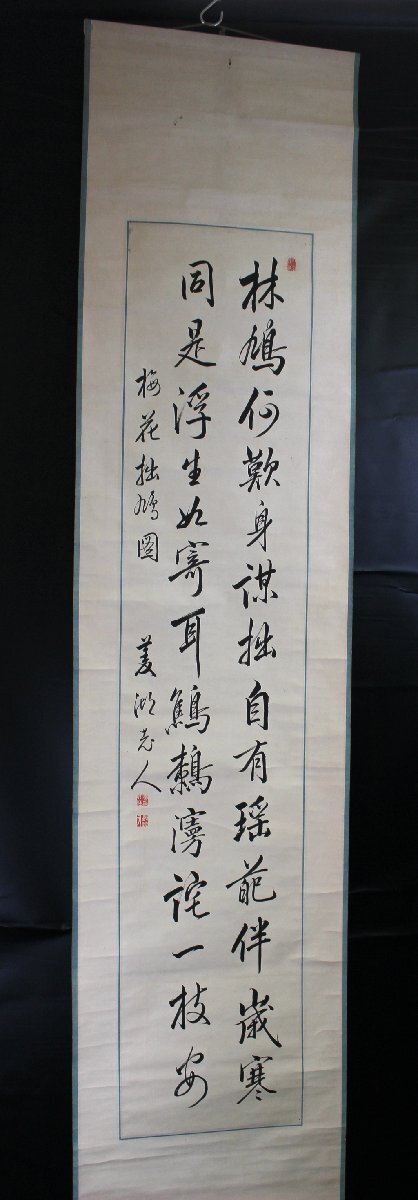 林鳩何歎身謀拙自有瑶葩伴歳寒
同是浮生如寄耳鷦鷯謾詫一枝安
梅花拙鳩圖 菱湖老人